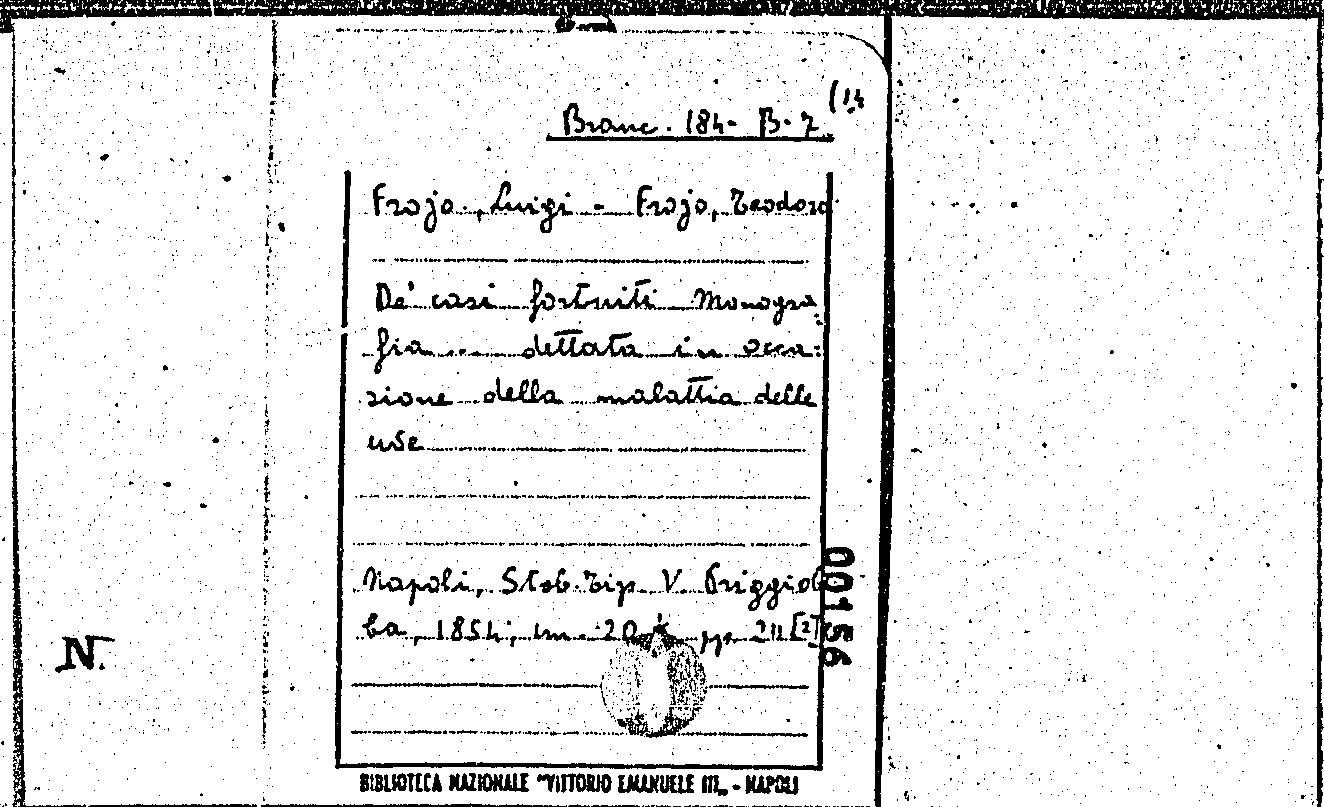 Branc. 184- B- 7 (14
Frojo, Luigi - Frojo, Teodoro
De' casi fortuiti Monogra=
fia ... dettata in occa=
sione della malattia delle
uve
Napoli, Stob. Tip. V. Priggiob
ba, 1854; in- 20 pp. 211 [2]
00156
N.
BIBLIOTECA NAZIONALE "VITTORIO EMANUELE III„ - NAPOLI